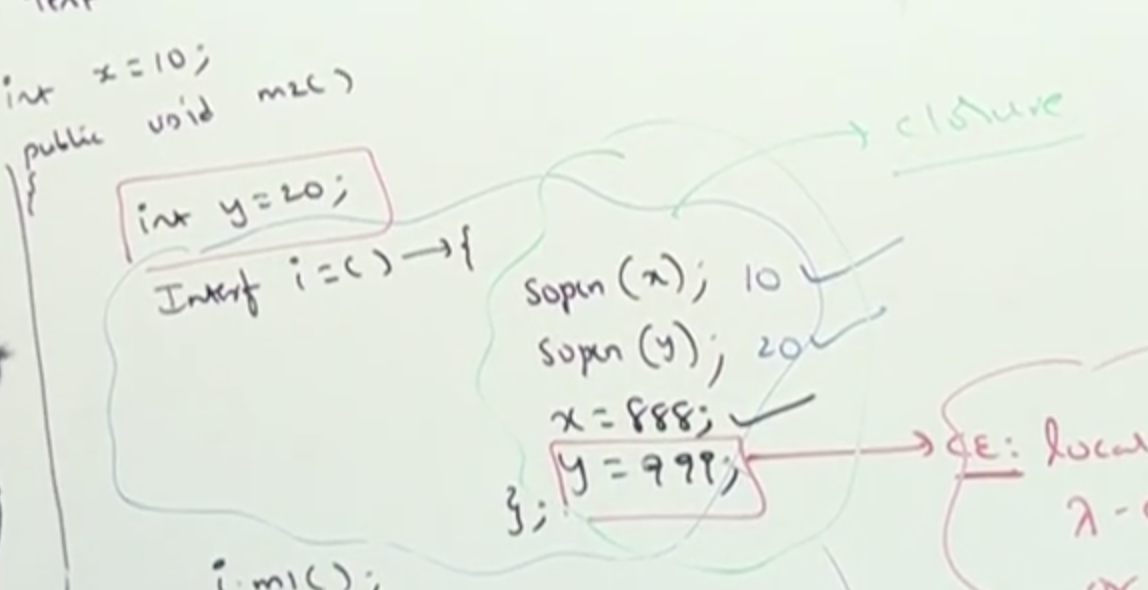 int x = 10;
public void m2()
{
int y = 20;
Interf i = () → {
sopln (x); 10
sopln (y); 20
x = 888;
y = 999;
};
i.m1();
closure
CE: local
λ -